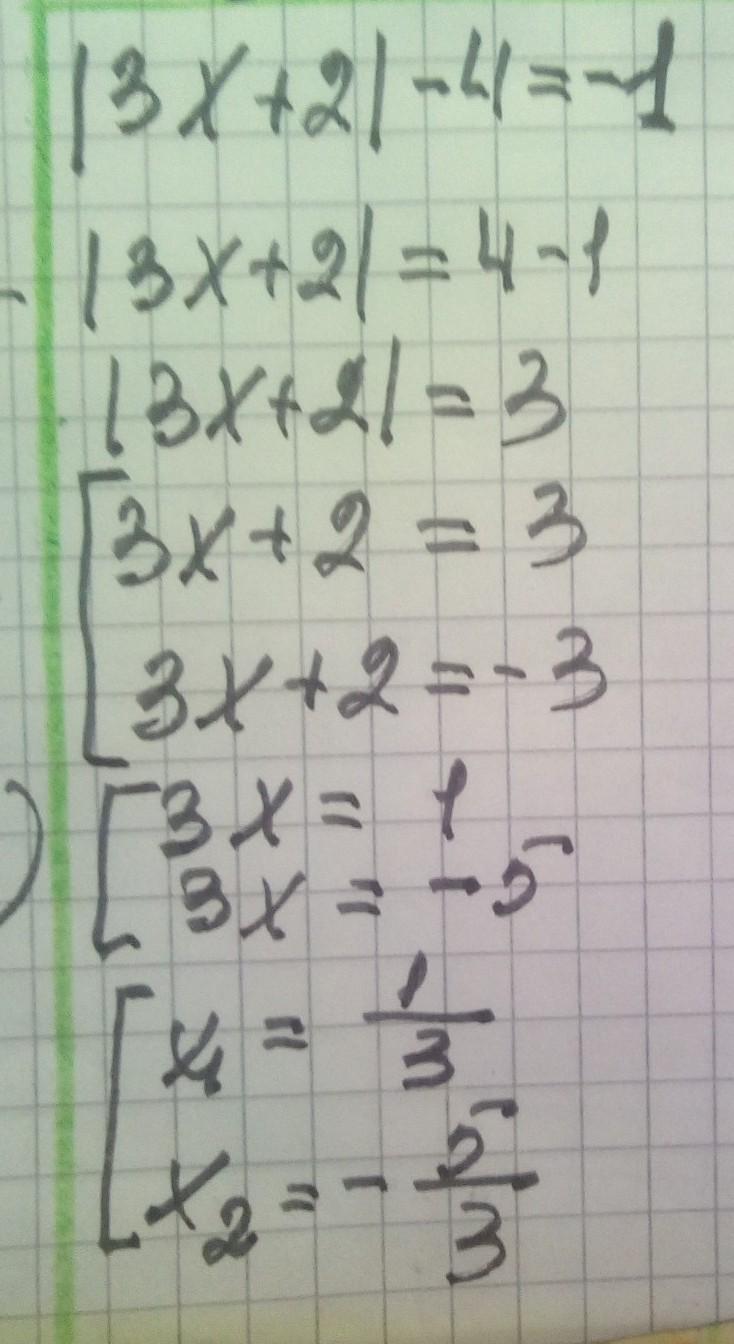 |3x+2|-4=-1
|3x+2|=4-1
|3x+2|=3
[3x+2=3
3x+2=-3
[3x=1
3x=-5
[x₁=1/3
x₂=-5/3